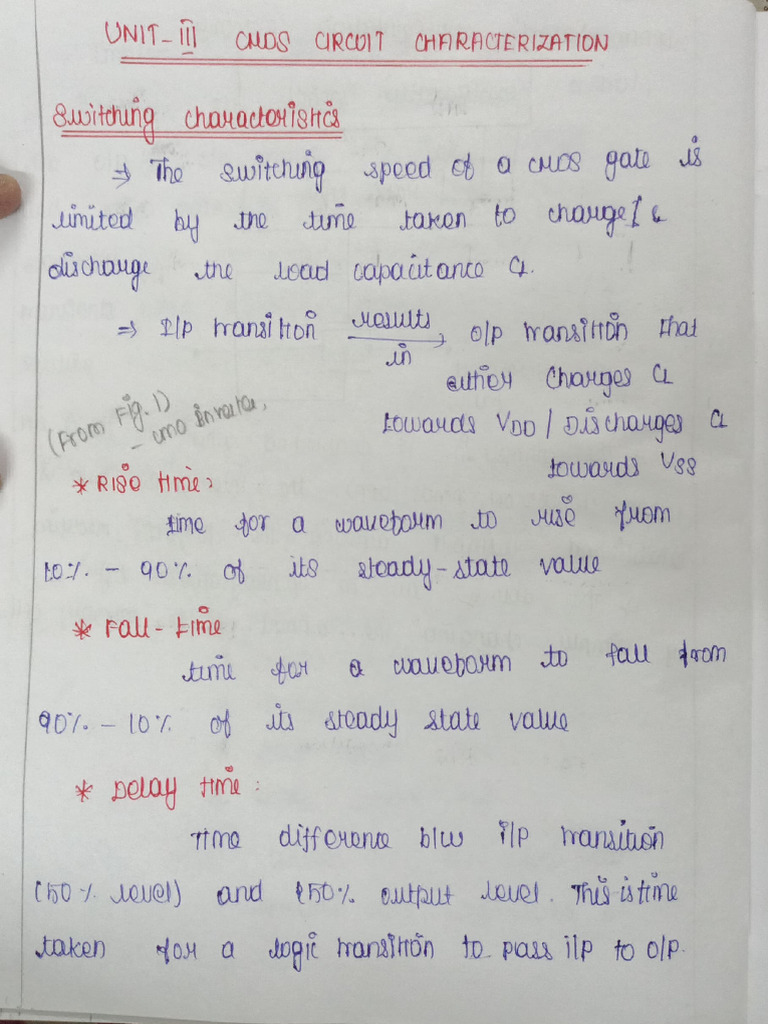 UNIT-III CMOS CIRCUIT CHARACTERIZATION
Switching characteristics
⇒ The switching speed of a CMOS gate is
limited by the time taken to charge/ &
discharge the load capacitance CL.
⇒ I/P transition results in → O/P transition that
either charges CL
(From Fig. 1)
towards VDD / Discharges CL
towards VSS
* Rise time:
time for a waveform to rise from
10% - 90% of its steady-state value
* Fall-time
time for a waveform to fall from
90% - 10% of its steady state value
* Delay time:
Time difference b/w i/p transition
(50% level) and 50% output level. This is time
taken for a logic transition to pass i/p to o/p.